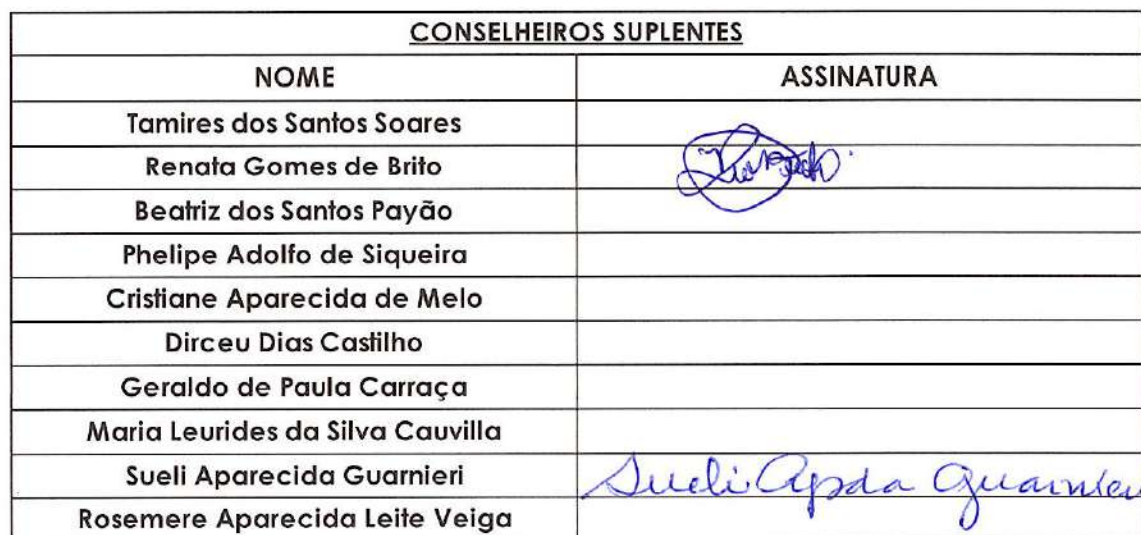 CONSELHEIROS SUPLENTES
NOME ASSINATURA
Tamires dos Santos Soares
Renata Gomes de Brito
Beatriz dos Santos Payão
Phelipe Adolfo de Siqueira
Cristiane Aparecida de Melo
Dirceu Dias Castilho
Geraldo de Paula Carraça
Maria Leurides da Silva Cauvilla
Sueli Aparecida Guarnieri Sueli Apda Guarnieri
Rosemere Aparecida Leite Veiga